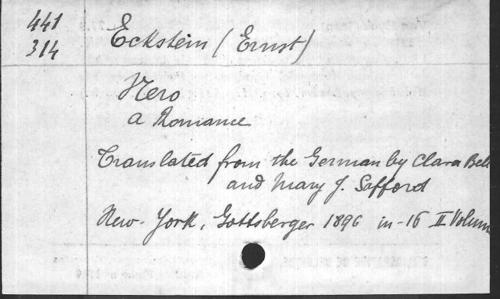 441
314
Eckstein (Ernst)
Nero
a Romance
Translated from the German by Clara Bell
and Mary J. Safford
New-York, Gottsberger 1896 in-16 II Volum